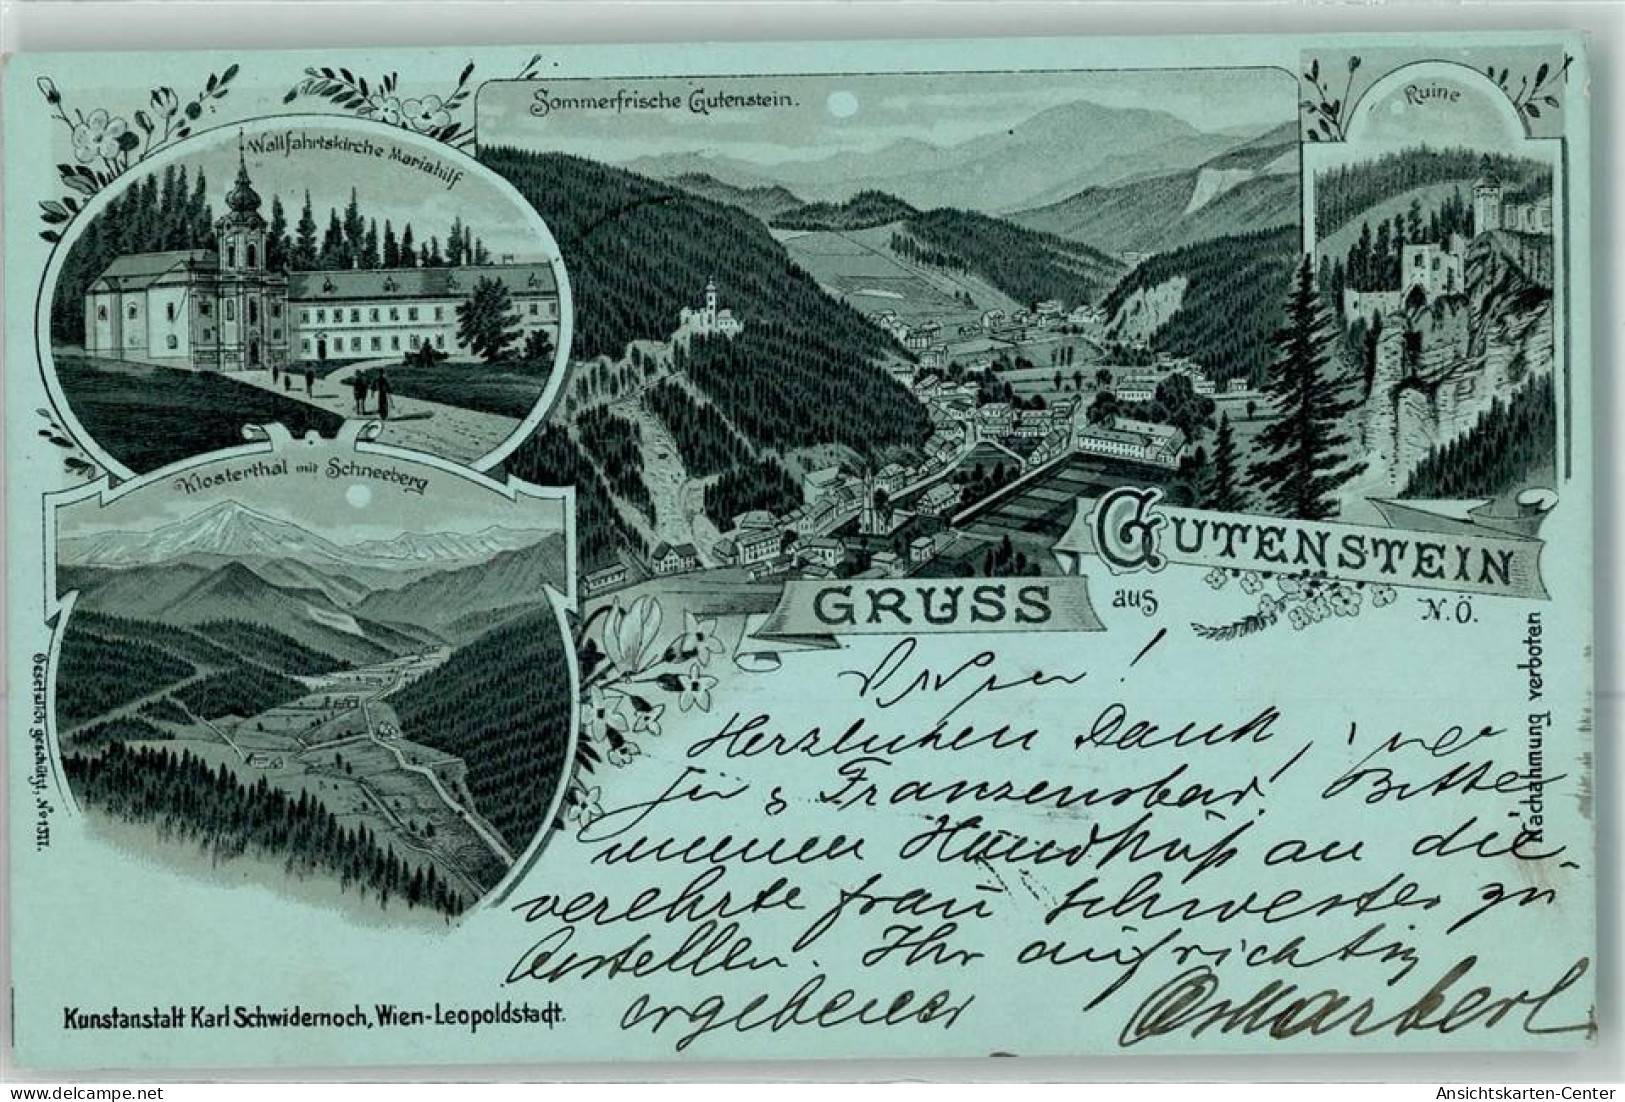 Wallfahrtskirche Mariahilf
Sommerfrische Gutenstein.
Ruine
Klosterthal mit Schneeberg
GRUSS aus GUTENSTEIN
N.Ö.
Gesetzlich geschützt, No 1311.
Nachahmung verboten
Herzlichen Dank
für Franzensbad! Bitte
meinen Handkuß an die
verehrte Frau Schwester zu
bestellen. Ihr aufrichtig
ergebener
Kunstanstalt Karl Schwidernoch, Wien-Leopoldstadt.
Ansichtskarten-Center